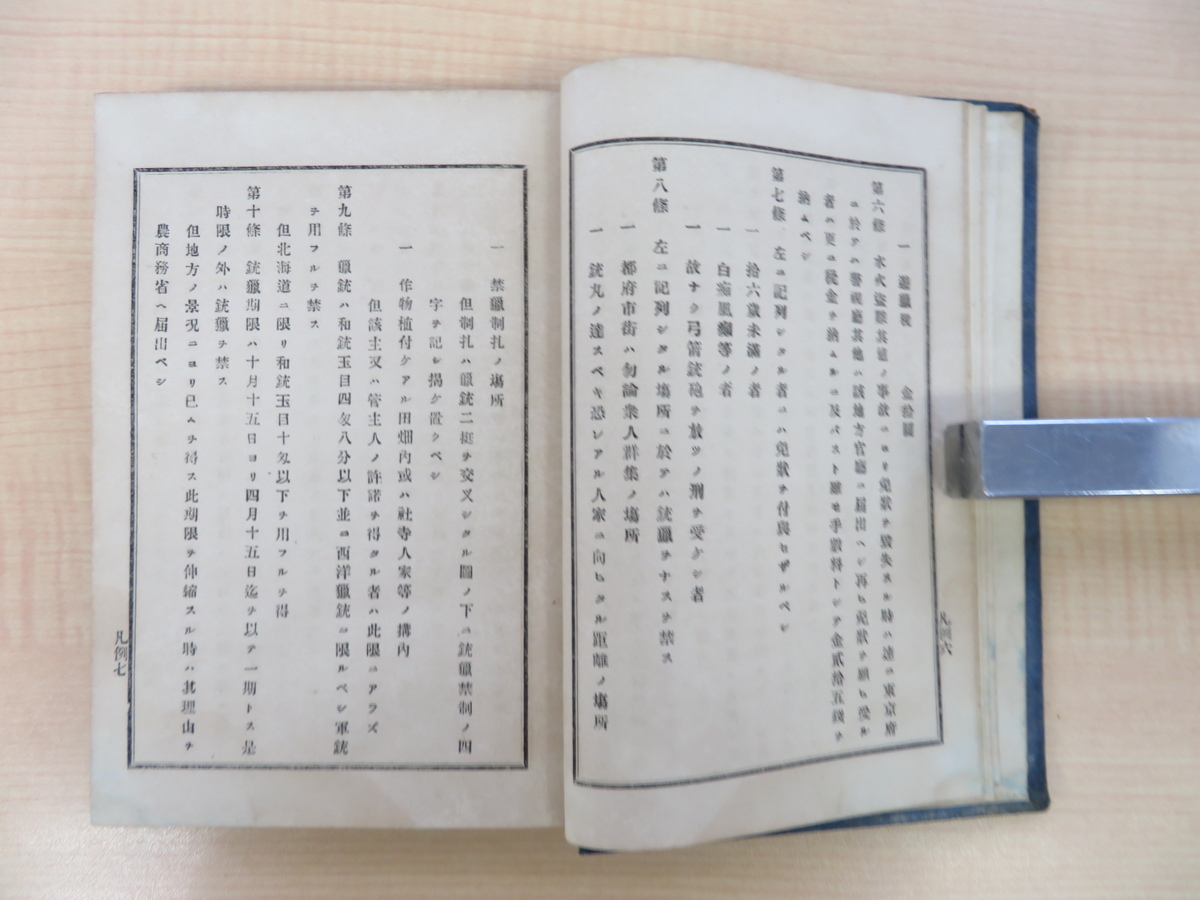 一 遊獵稅 金拾圓
第六條 水火盜難其他ノ事故ニヨリ免狀ヲ毀失スル時ハ速ニ東京府
ニ於テハ警視廳其他ハ該地方官廳ニ届出ヘシ再ヒ免狀ヲ願ヒ受ル
者ハ更ニ稅金ヲ納ムルニ及バスト雖モ手數料トシテ金貳拾五錢ヲ
納ムベシ
第七條 左ニ記列シタル者ニハ免狀ヲ付與セザルベシ
一 拾六歲未滿ノ者
一 白痴風癲等ノ者
一 故ナク弓箭銃砲ヲ放ツノ刑ヲ受ケシ者
第八條 左ニ記列シタル塲所ニ於テハ銃獵ヲナスヲ禁ス
一 都府市街ハ勿論衆人群集ノ塲所
一 銃丸ノ達スベキ恐レアル人家ニ向ヒタル距離ノ塲所
凡例六
一 禁獵制札ノ塲所
但制札ハ獵銃二挺ヲ交叉シタル圖ノ下ニ銃獵禁制ノ四
字ヲ記シ揭ケ置クベシ
一 作物植付ケアル田畑內或ハ社寺人家等ノ搆內
但該主又ハ管主人ノ許諾ヲ得タル者ハ此限ニアラズ
第九條 獵銃ハ和銃玉目四匁八分以下並ニ西洋獵銃ニ限ルベシ軍銃
ヲ用フルヲ禁ス
但北海道ニ限リ和銃玉目十匁以下ヲ用フルヲ得
第十條 銃獵期限ハ十月十五日ヨリ四月十五日迄ヲ以テ一期トス是
時限ノ外ハ銃獵ヲ禁ス
但地方ノ景況ニヨリ已ムヲ得ス此期限ヲ伸縮スル時ハ其理由ヲ
農商務省ヘ届出ベシ
凡例七